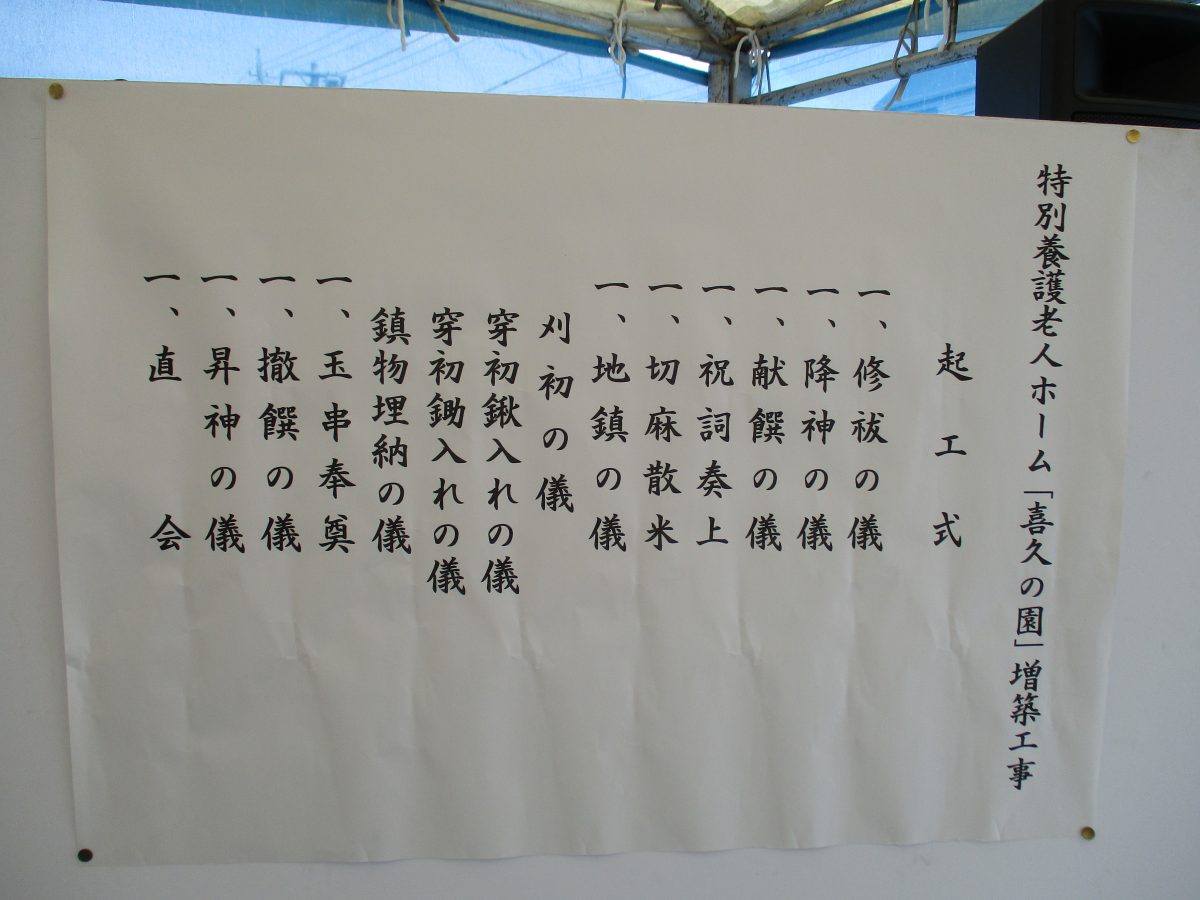 特別養護老人ホーム「喜久の園」増築工事
起工式
一、修祓の儀
一、降神の儀
一、献饌の儀
一、祝詞奏上
一、切麻散米
一、地鎮の儀
刈初の儀
穿初鍬入れの儀
穿初鋤入れの儀
鎮物埋納の儀
一、玉串奉奠
一、撤饌の儀
一、昇神の儀
一、直会